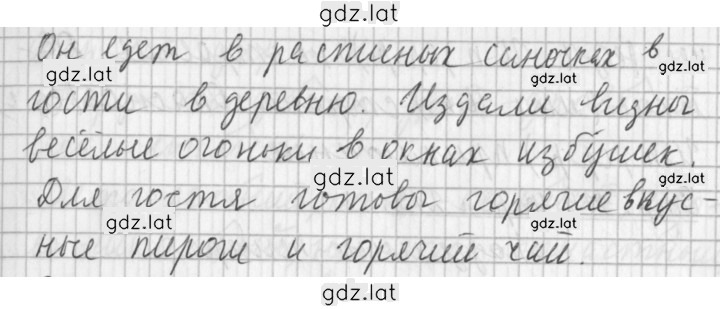 gdz.lat
Он едет в расписных саночках в
gdz.lat gdz.lat gdz.lat
гости в деревню. Издали видны
весёлые огоньки в окнах избушек.
gdz.lat gdz.lat
Для гостя готовы горячие вкус-
gdz.lat gdz.lat
ные пироги и горячий чай.
gdz.lat